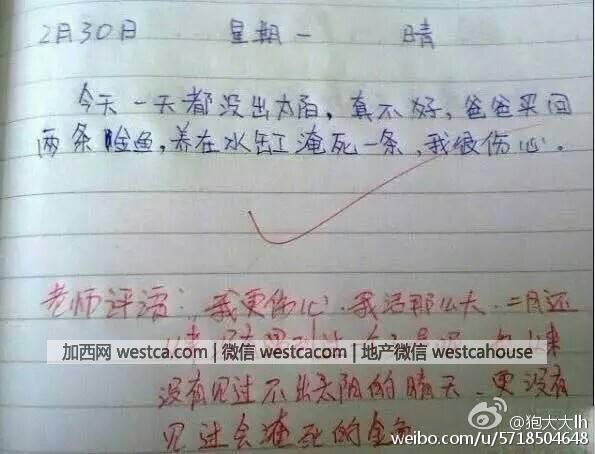 2月30日 星期一 晴
今天一天都没出太阳,真不好,爸爸买回
两条金鱼,养在水缸淹死一条,我很伤心。
老师评语:我更伤心.我活那么大.二月还
加西网 westca.com | 微信 westcacom | 地产微信 westcahouse
没有见过不出太阳的晴天.更没有
见过会淹死的金鱼
@狍大大lh
weibo.com/u/5718504648